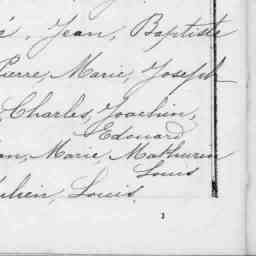 Jean, Baptiste
Pierre, Marie, Joseph
Charles, Joachim,
Edouard
Marie, Mathurin
Louis
Louis,